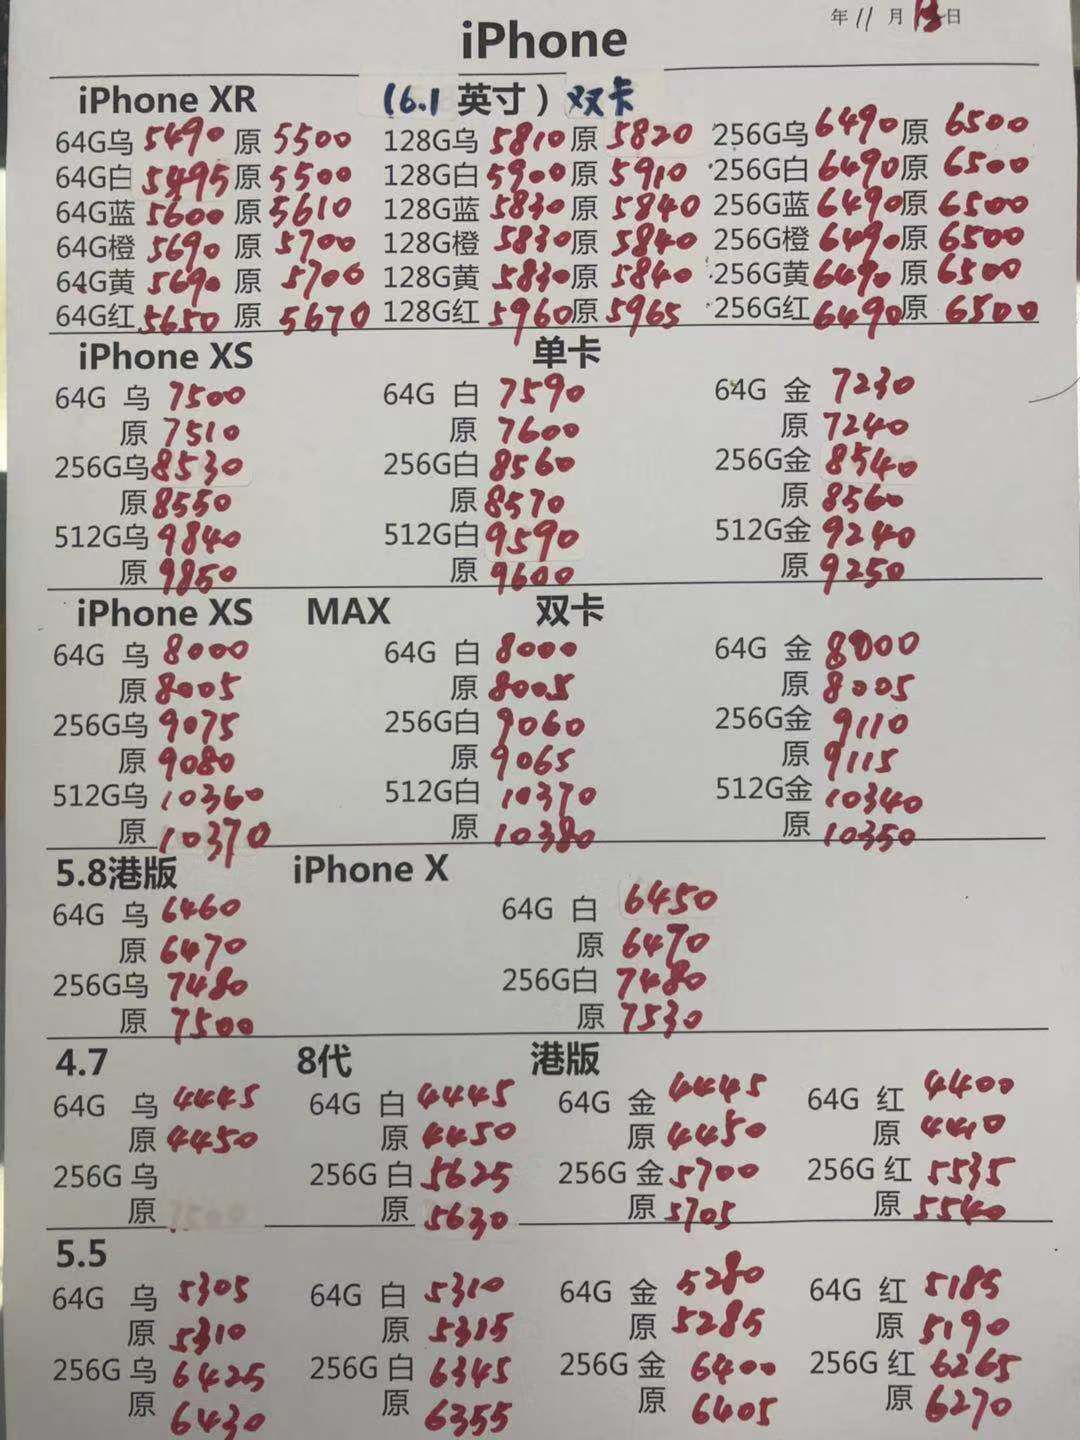 年 11 月 13 日
iPhone
iPhone XR (6.1 英寸) 双卡
64G乌 5490 原 5500 128G乌 5810 原 5820 256G乌 6490 原 6500
64G白 5495 原 5500 128G白 5900 原 5910 256G白 6490 原 6500
64G蓝 5600 原 5610 128G蓝 5830 原 5840 256G蓝 6490 原 6500
64G橙 5690 原 5700 128G橙 5830 原 5840 256G橙 6490 原 6500
64G黄 5690 原 5700 128G黄 5830 原 5840 256G黄 6490 原 6500
64G红 5650 原 5670 128G红 5960 原 5965 256G红 6490 原 6500
iPhone XS 单卡
64G 乌 7500 64G 白 7590 64G 金 7230
原 7510 原 7600 原 7240
256G乌 8530 256G白 8560 256G金 8540
原 8550 原 8570 原 8560
512G乌 9840 512G白 9590 512G金 9240
原 9850 原 9600 原 9250
iPhone XS MAX 双卡
64G 乌 8000 64G 白 8000 64G 金 8000
原 8005 原 8005 原 8005
256G乌 9075 256G白 9060 256G金 9110
原 9080 原 9065 原 9115
512G乌 10360 512G白 10370 512G金 10340
原 10370 原 10380 原 10350
5.8港版 iPhone X
64G 乌 6460 64G 白 6450
原 6470 原 6470
256G乌 7480 256G白 7480
原 7500 原 7530
4.7 8代 港版
64G 乌 4445 64G 白 4445 64G 金 4445 64G 红 4400
原 4450 原 4450 原 4450 原 4410
256G 乌 256G 白 5625 256G 金 5700 256G 红 5535
原 原 5630 原 5705 原 5540
5.5
64G 乌 5305 64G 白 5310 64G 金 5280 64G 红 5185
原 5310 原 5315 原 5285 原 5190
256G 乌 6425 256G 白 6345 256G 金 6400 256G 红 6265
原 6430 原 6355 原 6405 原 6270